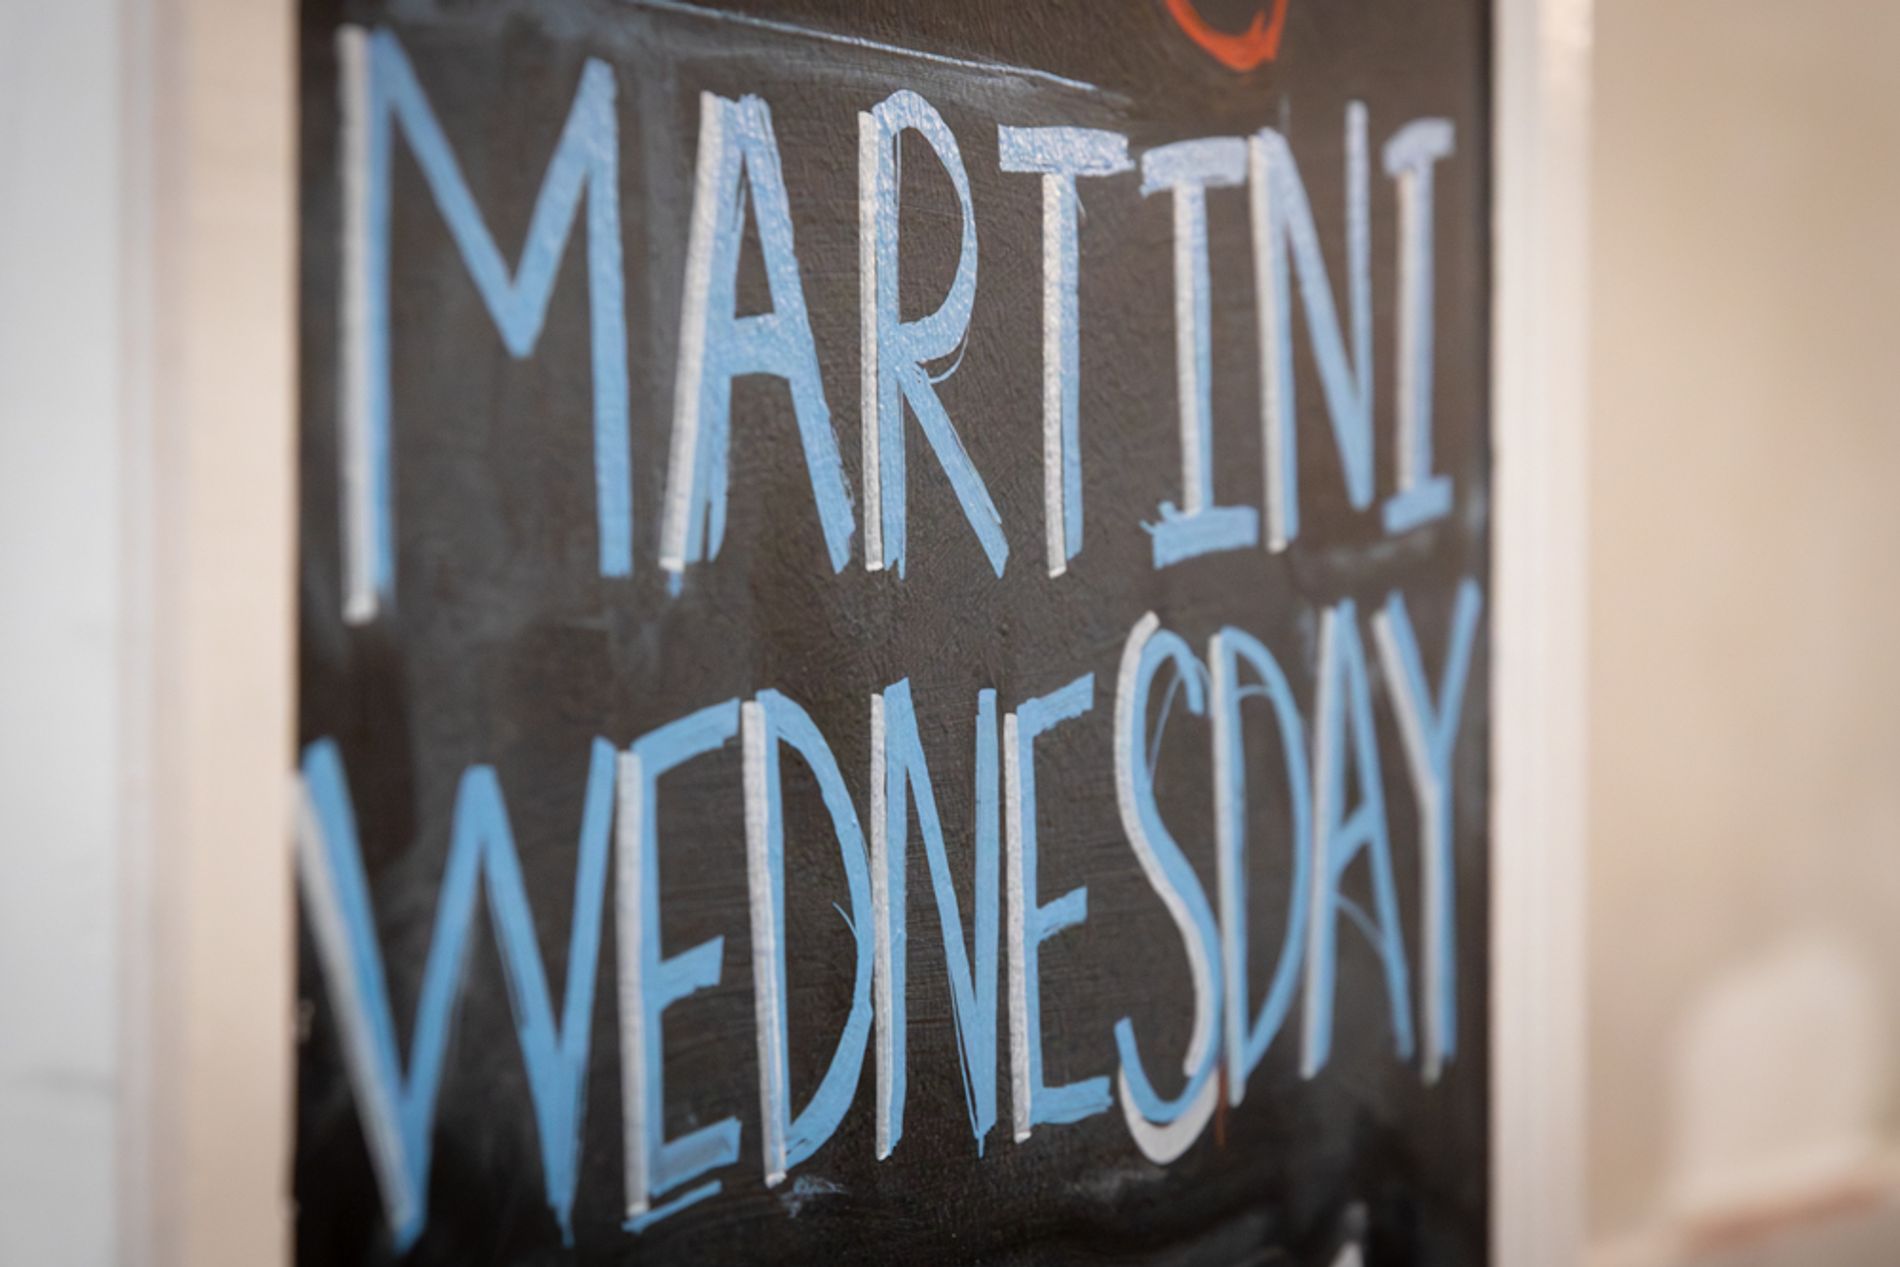 MARTINI
WEDNESDAY